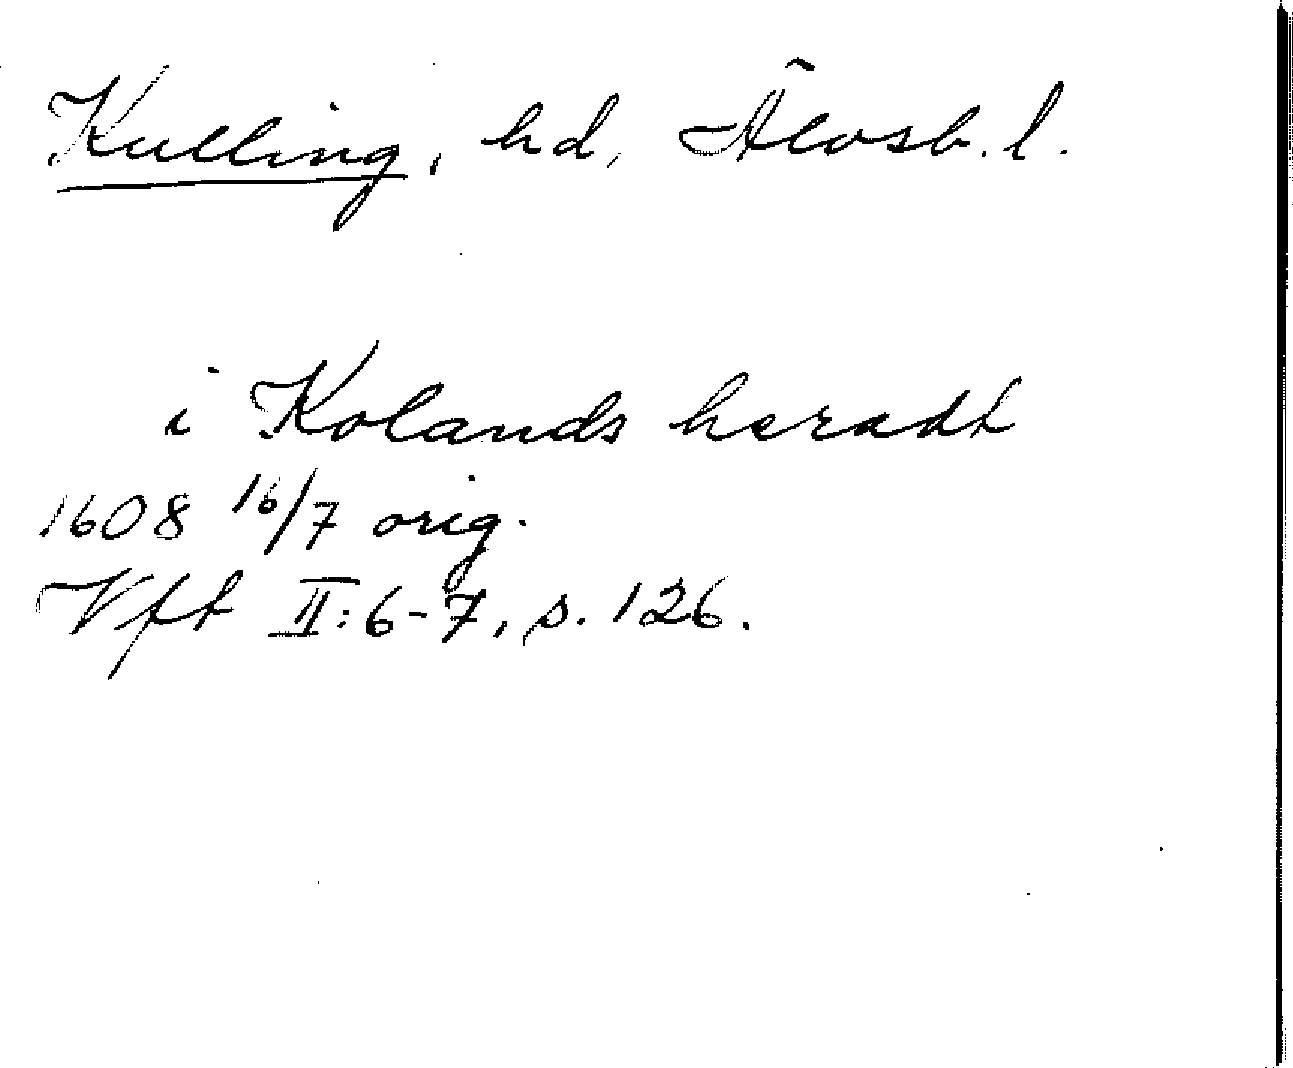 Kulling, hd, Älvsb. l.
i Kolands heradt
1608 16/7 orig.
Vft II:6-7, s. 126.